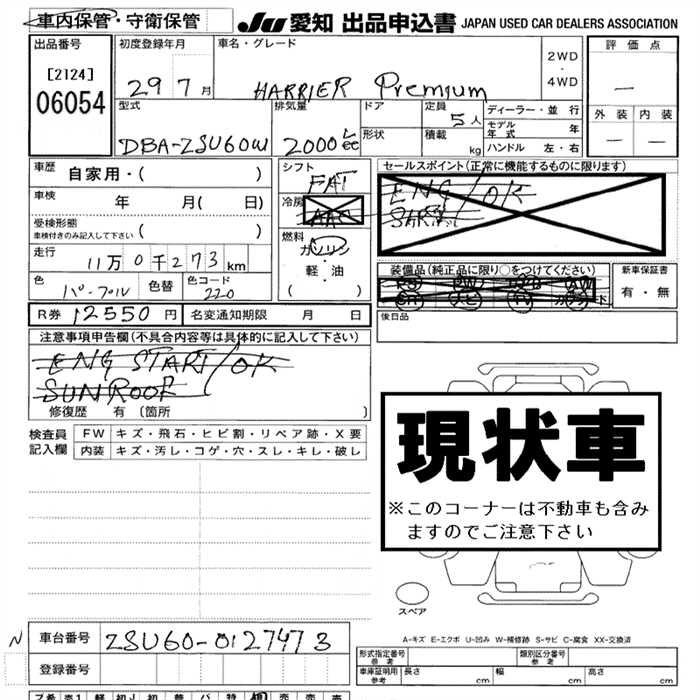 車内保管・守衛保管
JU 愛知 出品申込書 JAPAN USED CAR DEALERS ASSOCIATION
出品番号
[2124]
06054
初度登録年月
29 7 月
車名・グレード
HARRIER Premium
2WD
・
4WD
評価点
—
外装 内装
— —
型式
DBA-ZSU60W
排気量
2000 cc
ドア
形状
定員
5人
積載
kg
ディーラー・並行
モデル年式 年
ハンドル 左・右
車歴
自家用・( )
車検
年 月( 日)
受検形態
車検付きのみ記入して下さい ( )
走行
11万0千273km
色
パープル
色替
色コード
220
R券 12550円
名変通知期限 月 日
シフト
FAT
冷房
AAC
燃料
ガソリン
・
軽・油
( )
セールスポイント(正常に機能するものに限ります)
ENG/OK
装備品(純正品に限り○をつけてください)
新車保証書
有・無
後日品
注意事項申告欄(不具合内容等は具体的に記入して下さい)
ENG START/OK
SUNROOF
修復歴 有 (箇所 )
検査員
記入欄
FW キズ・飛石・ヒビ割・リペア跡・X要
内装 キズ・汚レ・コゲ・穴・スレ・キレ・破レ
現状車
※このコーナーは不動車も含み
ますのでご注意下さい
スペア
A-キズ E-エクボ U-凹み W-補修跡 S-サビ C-腐食 XX-交換済
N 車台番号 ZSU60-0127473
登録番号
形式指定番号
参考
類別区分番号
参考
車庫証明用
参考
長さ cm 幅 cm 高さ cm